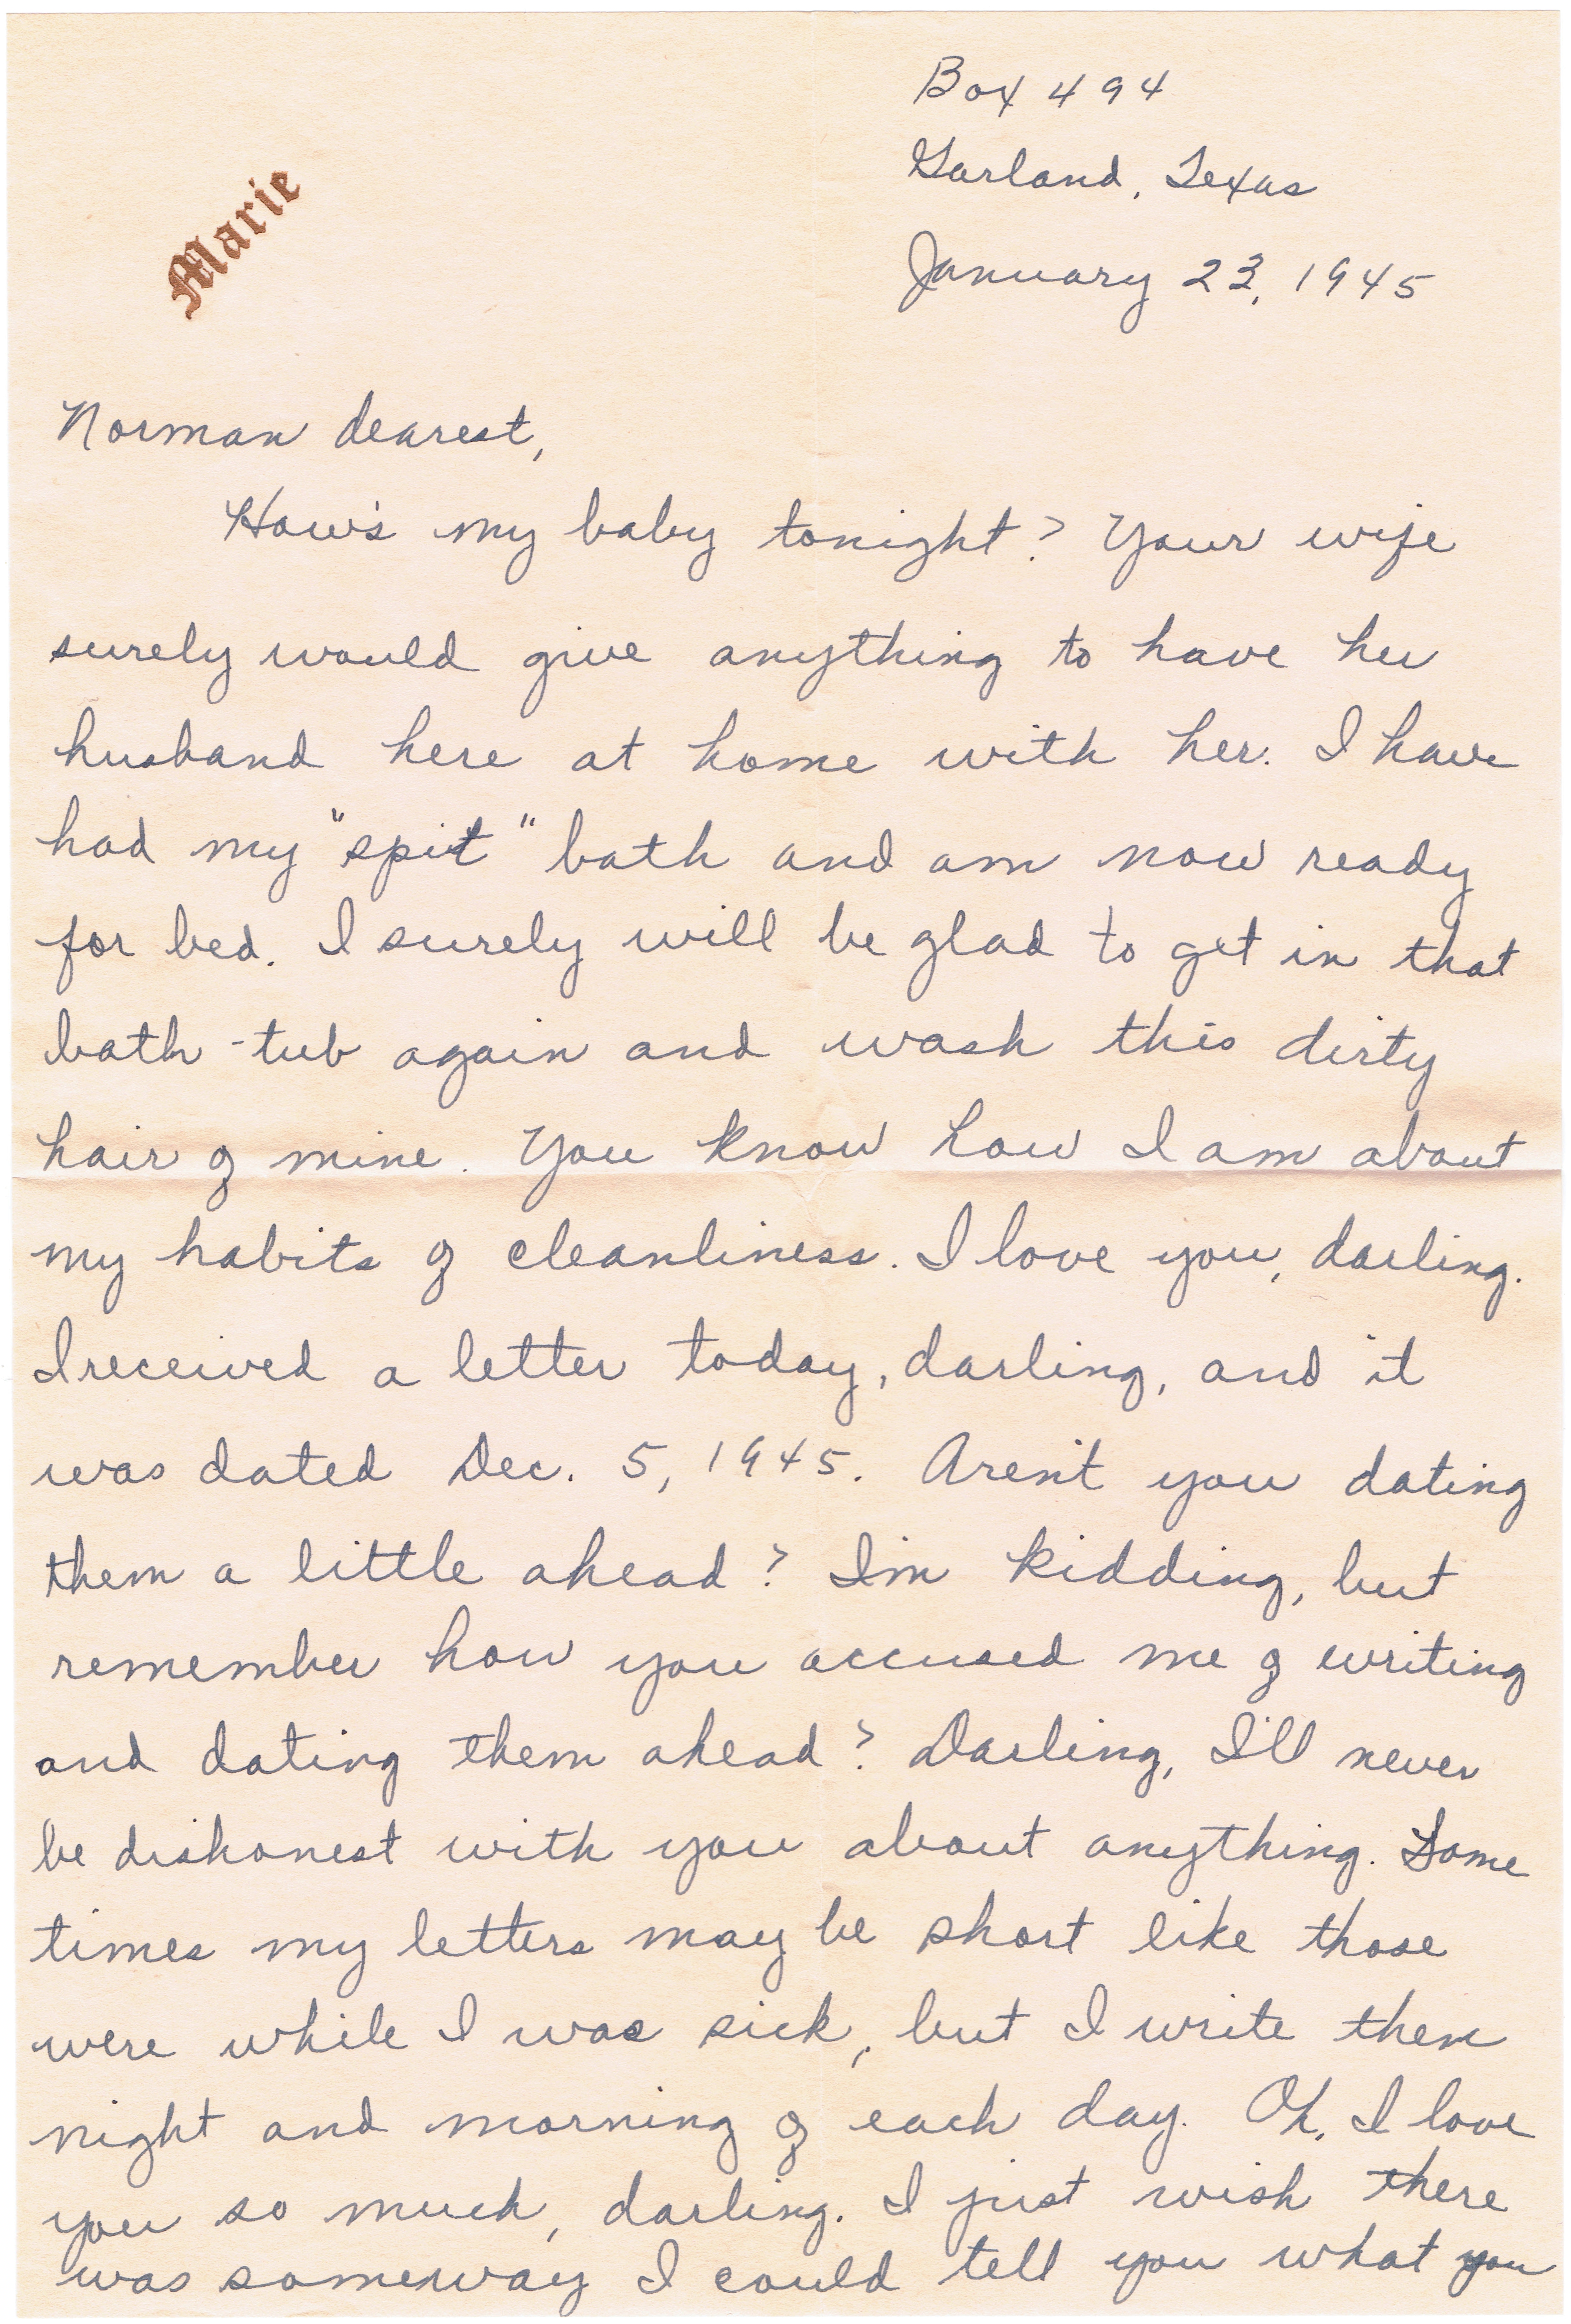 Box 494
Garland, Texas
January 23, 1945
Marie
Norman dearest,
How's my baby tonight? Your wife
surely would give anything to have her
husband here at home with her. I have
had my "spit" bath and am now ready
for bed. I surely will be glad to get in that
bath-tub again and wash this dirty
hair of mine. You know how I am about
my habits of cleanliness. I love you, darling.
I received a letter today, darling, and it
was dated Dec. 5, 1945. Aren't you dating
them a little ahead? I'm kidding, but
remember how you accused me of writing
and dating them ahead? Darling, I'll never
be dishonest with you about anything. Some
times my letters may be short like those
were while I was sick, but I write them
night and morning of each day. Oh, I love
you so much, darling. I just wish there
was someway I could tell you what you